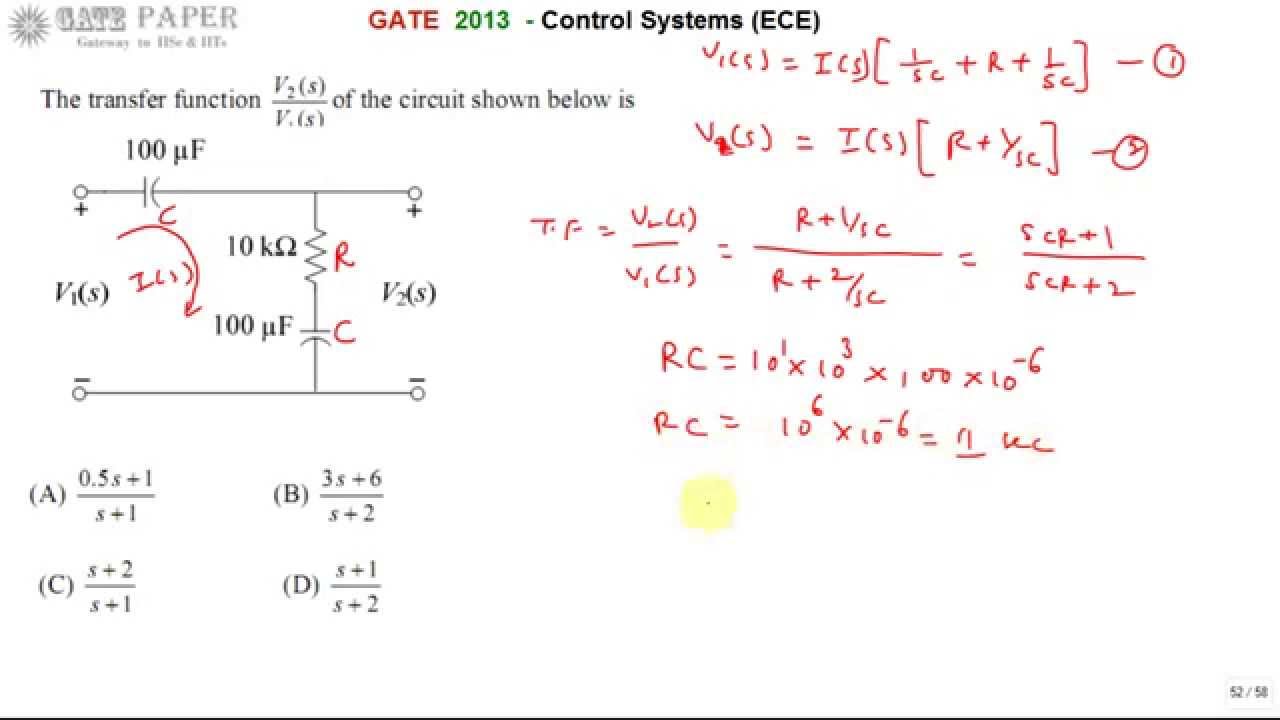 GATE PAPER
Gateway to IISc & IITs
GATE 2013 - Control Systems (ECE)
The transfer function V₂(s)/V₁(s) of the circuit shown below is
100 μF
C
+
+
10 kΩ
R
V₁(s)
I(s)
V₂(s)
100 μF
C
−
−
(A) (0.5s+1)/(s+1)
(B) (3s+6)/(s+2)
(C) (s+2)/(s+1)
(D) (s+1)/(s+2)
V₁(s) = I(s)[1/sc + R + 1/sc] — ①
V₂(s) = I(s)[R + 1/sc] — ②
T.F = V₂(s)/V₁(s) = (R + 1/sc)/(R + 2/sc) = (scR + 1)/(scR + 2)
RC = 10¹ × 10³ × 100 × 10⁻⁶
RC = 10⁶ × 10⁻⁶ = 1 sec
52 / 58